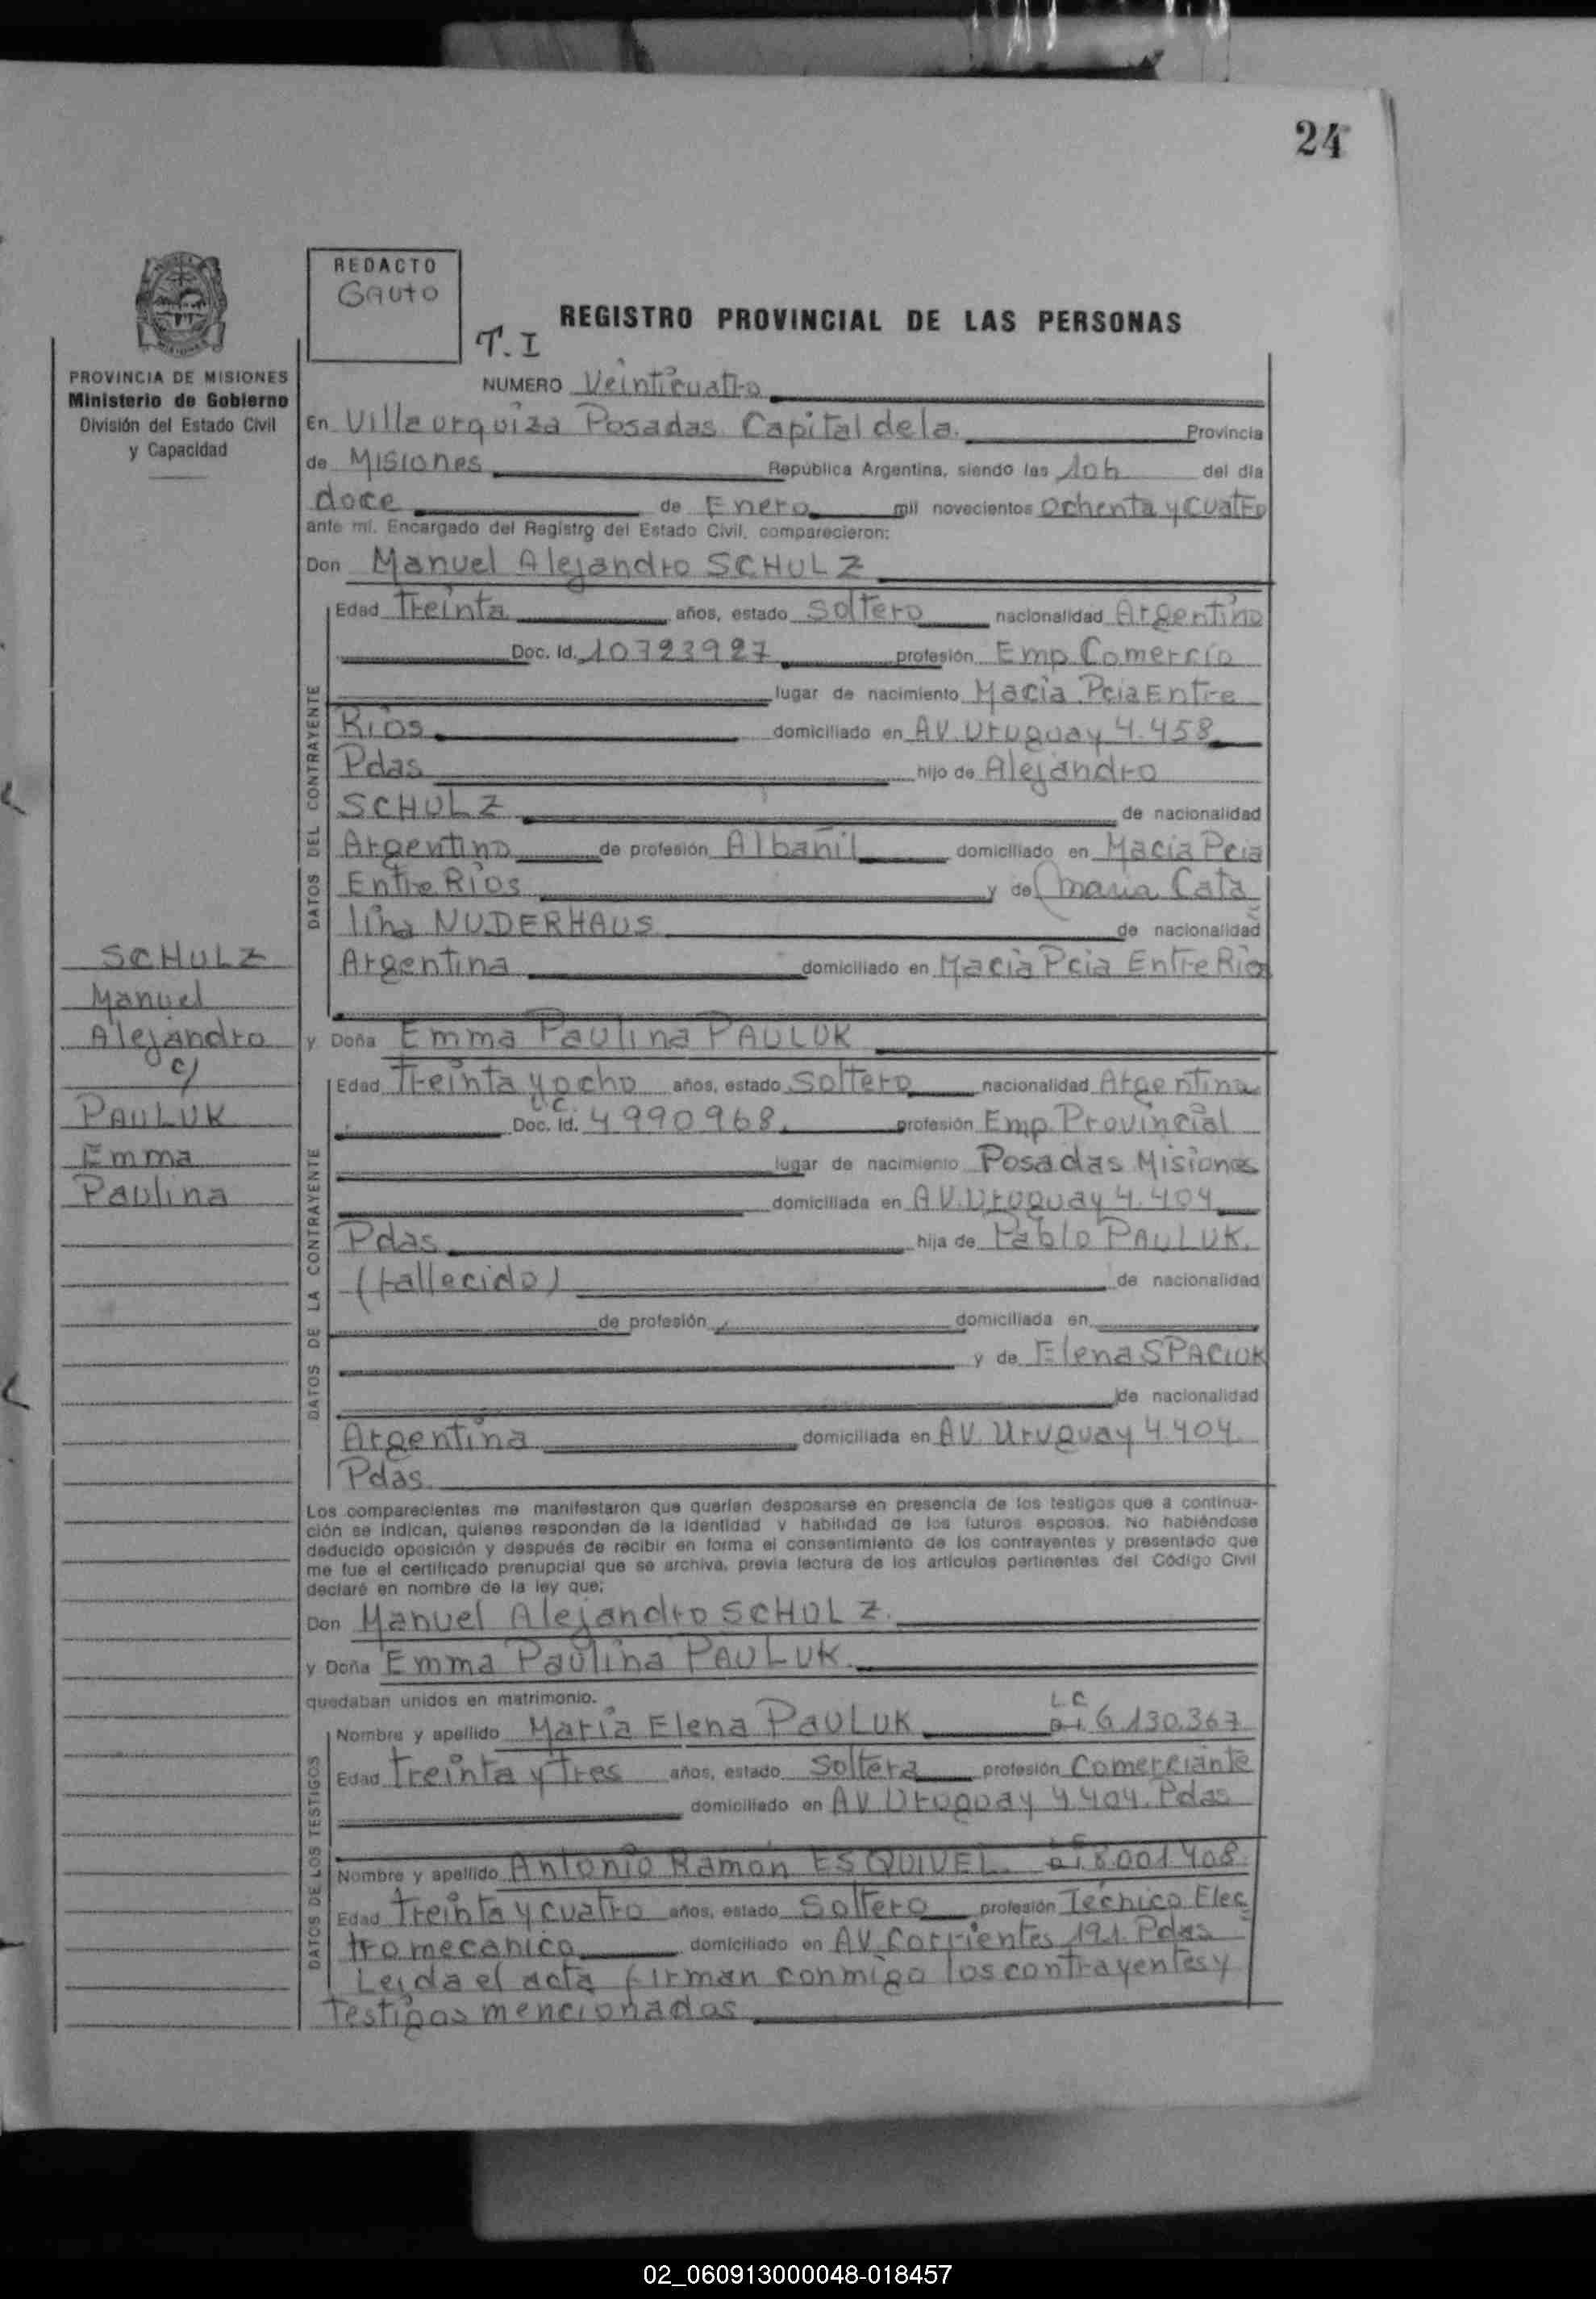 24
REDACTO
Gauto
REGISTRO PROVINCIAL DE LAS PERSONAS
T. I
PROVINCIA DE MISIONES
Ministerio de Gobierno
División del Estado Civil
y Capacidad
NUMERO Veinticuatro
En Villa urquiza Posadas Capital de la Provincia
de Misiones República Argentina, siendo las 10h del día
doce de Enero mil novecientos ochenta y cuatro
ante mí, Encargado del Registro del Estado Civil, comparecieron:
Don Manuel Alejandro SCHULZ
DATOS DEL CONTRAYENTE
Edad Treinta años, estado Soltero nacionalidad Argentino
Doc. Id. 10723927 profesión Emp. Comercio
lugar de nacimiento Macia Pcia Entre
Rios domiciliado en AV. Uruguay 4.458
Pdas hijo de Alejandro
SCHULZ de nacionalidad
Argentino de profesión Albañil domiciliado en Macia Pcia
Entre Rios y de Maria Cata
lina NUDERHAUS de nacionalidad
Argentina domiciliado en Macia Pcia Entre Rios
SCHULZ
Manuel
Alejandro
c/
PAULUK
Emma
Paulina
y Doña Emma Paulina PAULUK
DATOS DE LA CONTRAYENTE
Edad Treinta y ocho años, estado Soltero nacionalidad Argentina
L.C.
Doc. Id. 4990968 profesión Emp. Provincial
lugar de nacimiento Posadas Misiones
domiciliada en AV. Uruguay 4.404
Pdas hija de Pablo PAULUK.
(fallecido) de nacionalidad
de profesión domiciliada en
y de Elena SPACIUK
de nacionalidad
Argentina domiciliada en AV. Uruguay 4.404
Pdas.
Los comparecientes me manifestaron que querían desposarse en presencia de los testigos que a continua-
ción se indican, quienes responden de la identidad y habilidad de los futuros esposos. No habiéndose
deducido oposición y después de recibir en forma el consentimiento de los contrayentes y presentado que
me fue el certificado prenupcial que se archiva, previa lectura de los artículos pertinentes del Código Civil
declaré en nombre de la ley que:
Don Manuel Alejandro SCHULZ.
y Doña Emma Paulina PAULUK
quedaban unidos en matrimonio.
DATOS DE LOS TESTIGOS
L C
Nombre y apellido Maria Elena PAULUK 6.130.367
Edad Treinta y Tres años, estado Soltera profesión Comerciante
domiciliado en AV. Uruguay 4.404. Pdas
Nombre y apellido Antonio Ramón ESQUIVEL. 8.001.408
Edad Treinta y cuatro años, estado Soltero profesión Técnico Elec
tromecanico domiciliado en AV. Corrientes 191. Pdas
Leida el acta firman conmigo los contrayentes y
Testigos mencionados
02_060913000048-018457